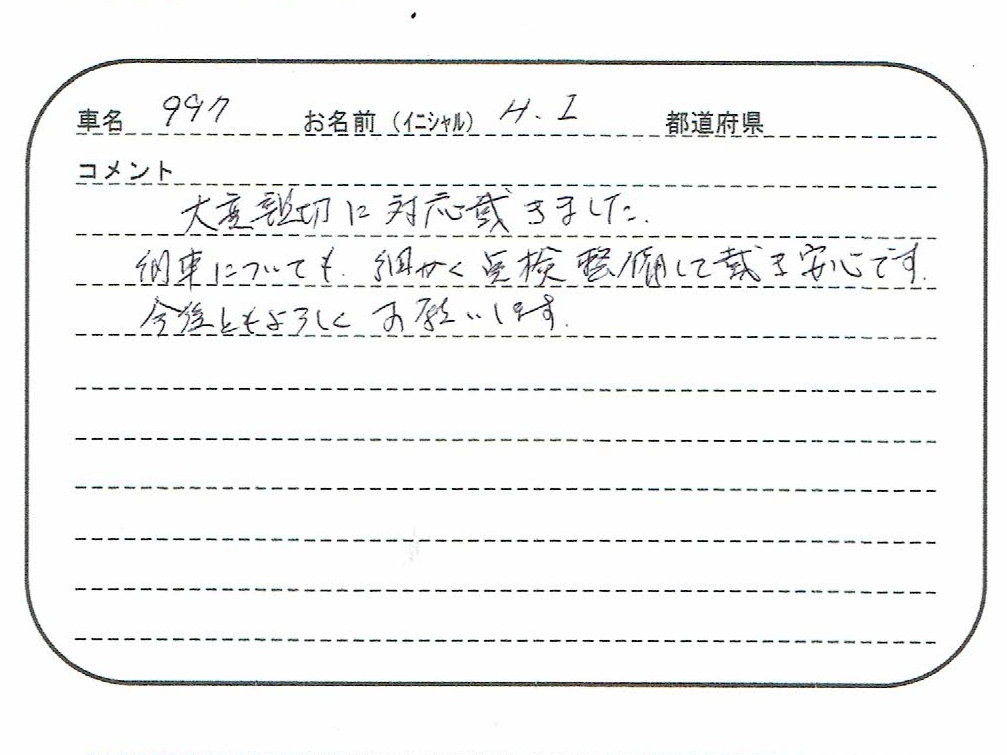 車名 997 お名前（イニシャル） H.I 都道府県
コメント
大変親切に対応戴きました.
納車についても、細かく点検整備して戴き安心です.
今後ともよろしくお願いします.